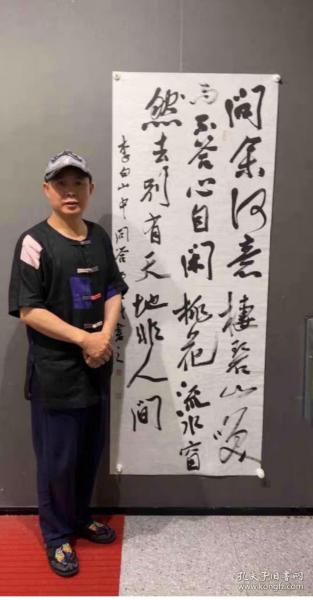 问余何意棲碧山笑
而不答心自闲桃花流水窅
然去别有天地非人间
李白山中问答
孔夫子旧书网
www.kongfz.com